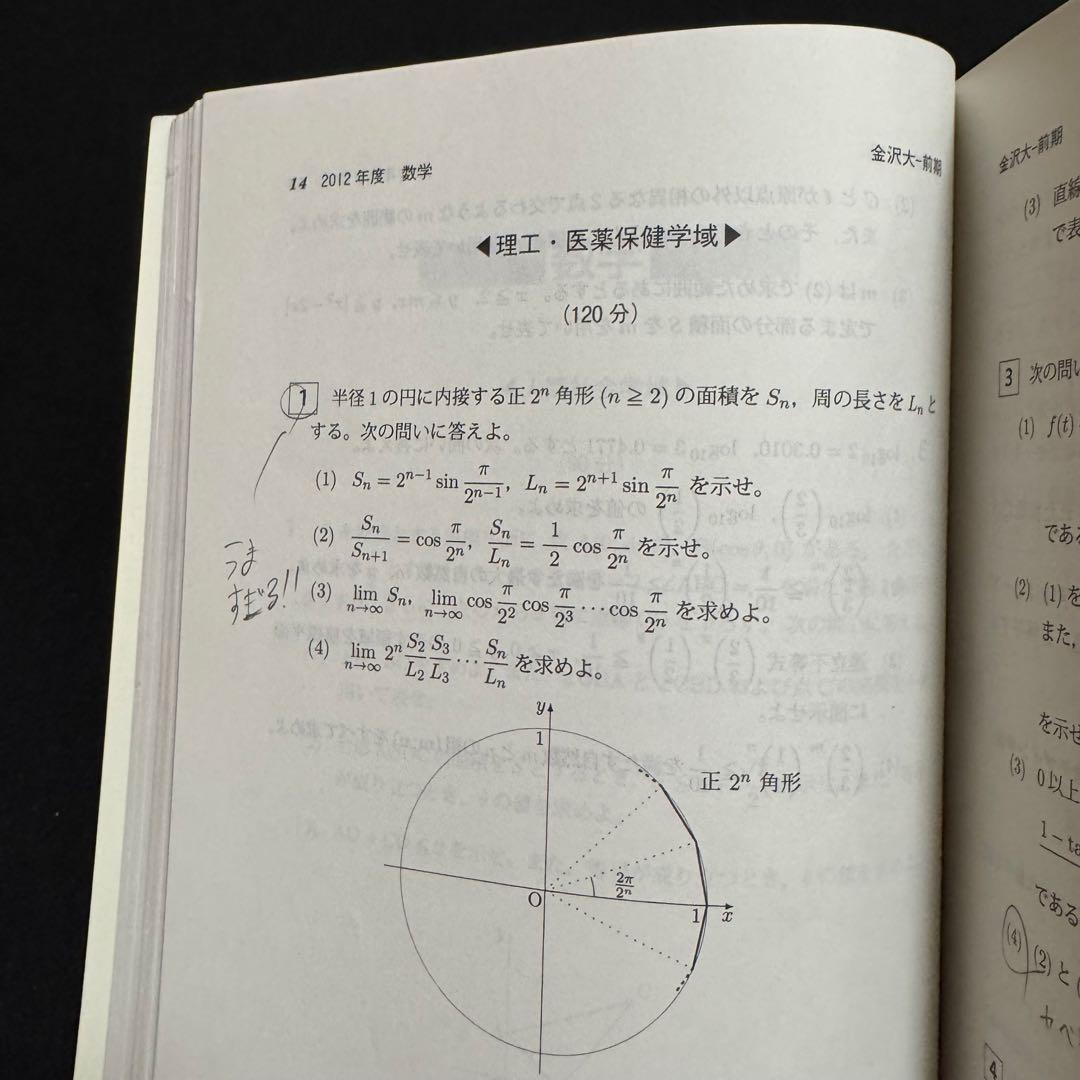 14 2012年度 数学
金沢大-前期
◀理工・医薬保健学域▶
(120分)
1 半径1の円に内接する正 2ⁿ 角形 (n ≧ 2) の面積を Sₙ, 周の長さを Lₙ と
する。次の問いに答えよ。
(1) Sₙ = 2ⁿ⁻¹ sin π/2ⁿ⁻¹, Lₙ = 2ⁿ⁺¹ sin π/2ⁿ を示せ。
(2) Sₙ/Sₙ₊₁ = cos π/2ⁿ, Sₙ/Lₙ = 1/2 cos π/2ⁿ を示せ。
(3) lim n→∞ Sₙ, lim n→∞ cos π/2² cos π/2³ ⋯ cos π/2ⁿ を求めよ。
(4) lim n→∞ 2ⁿ S₂/L₂ S₃/L₃ ⋯ Sₙ/Lₙ を求めよ。
うま
すぎる!!
y
1
正 2ⁿ 角形
2π/2ⁿ
O
1
x
金沢大-前期
(3) 直線
で表
3 次の問い
(1) f(t)
である
(2) (1)を
また,
を示せ
(3) 0以上
1 − ta
である
(4) (2)と
4